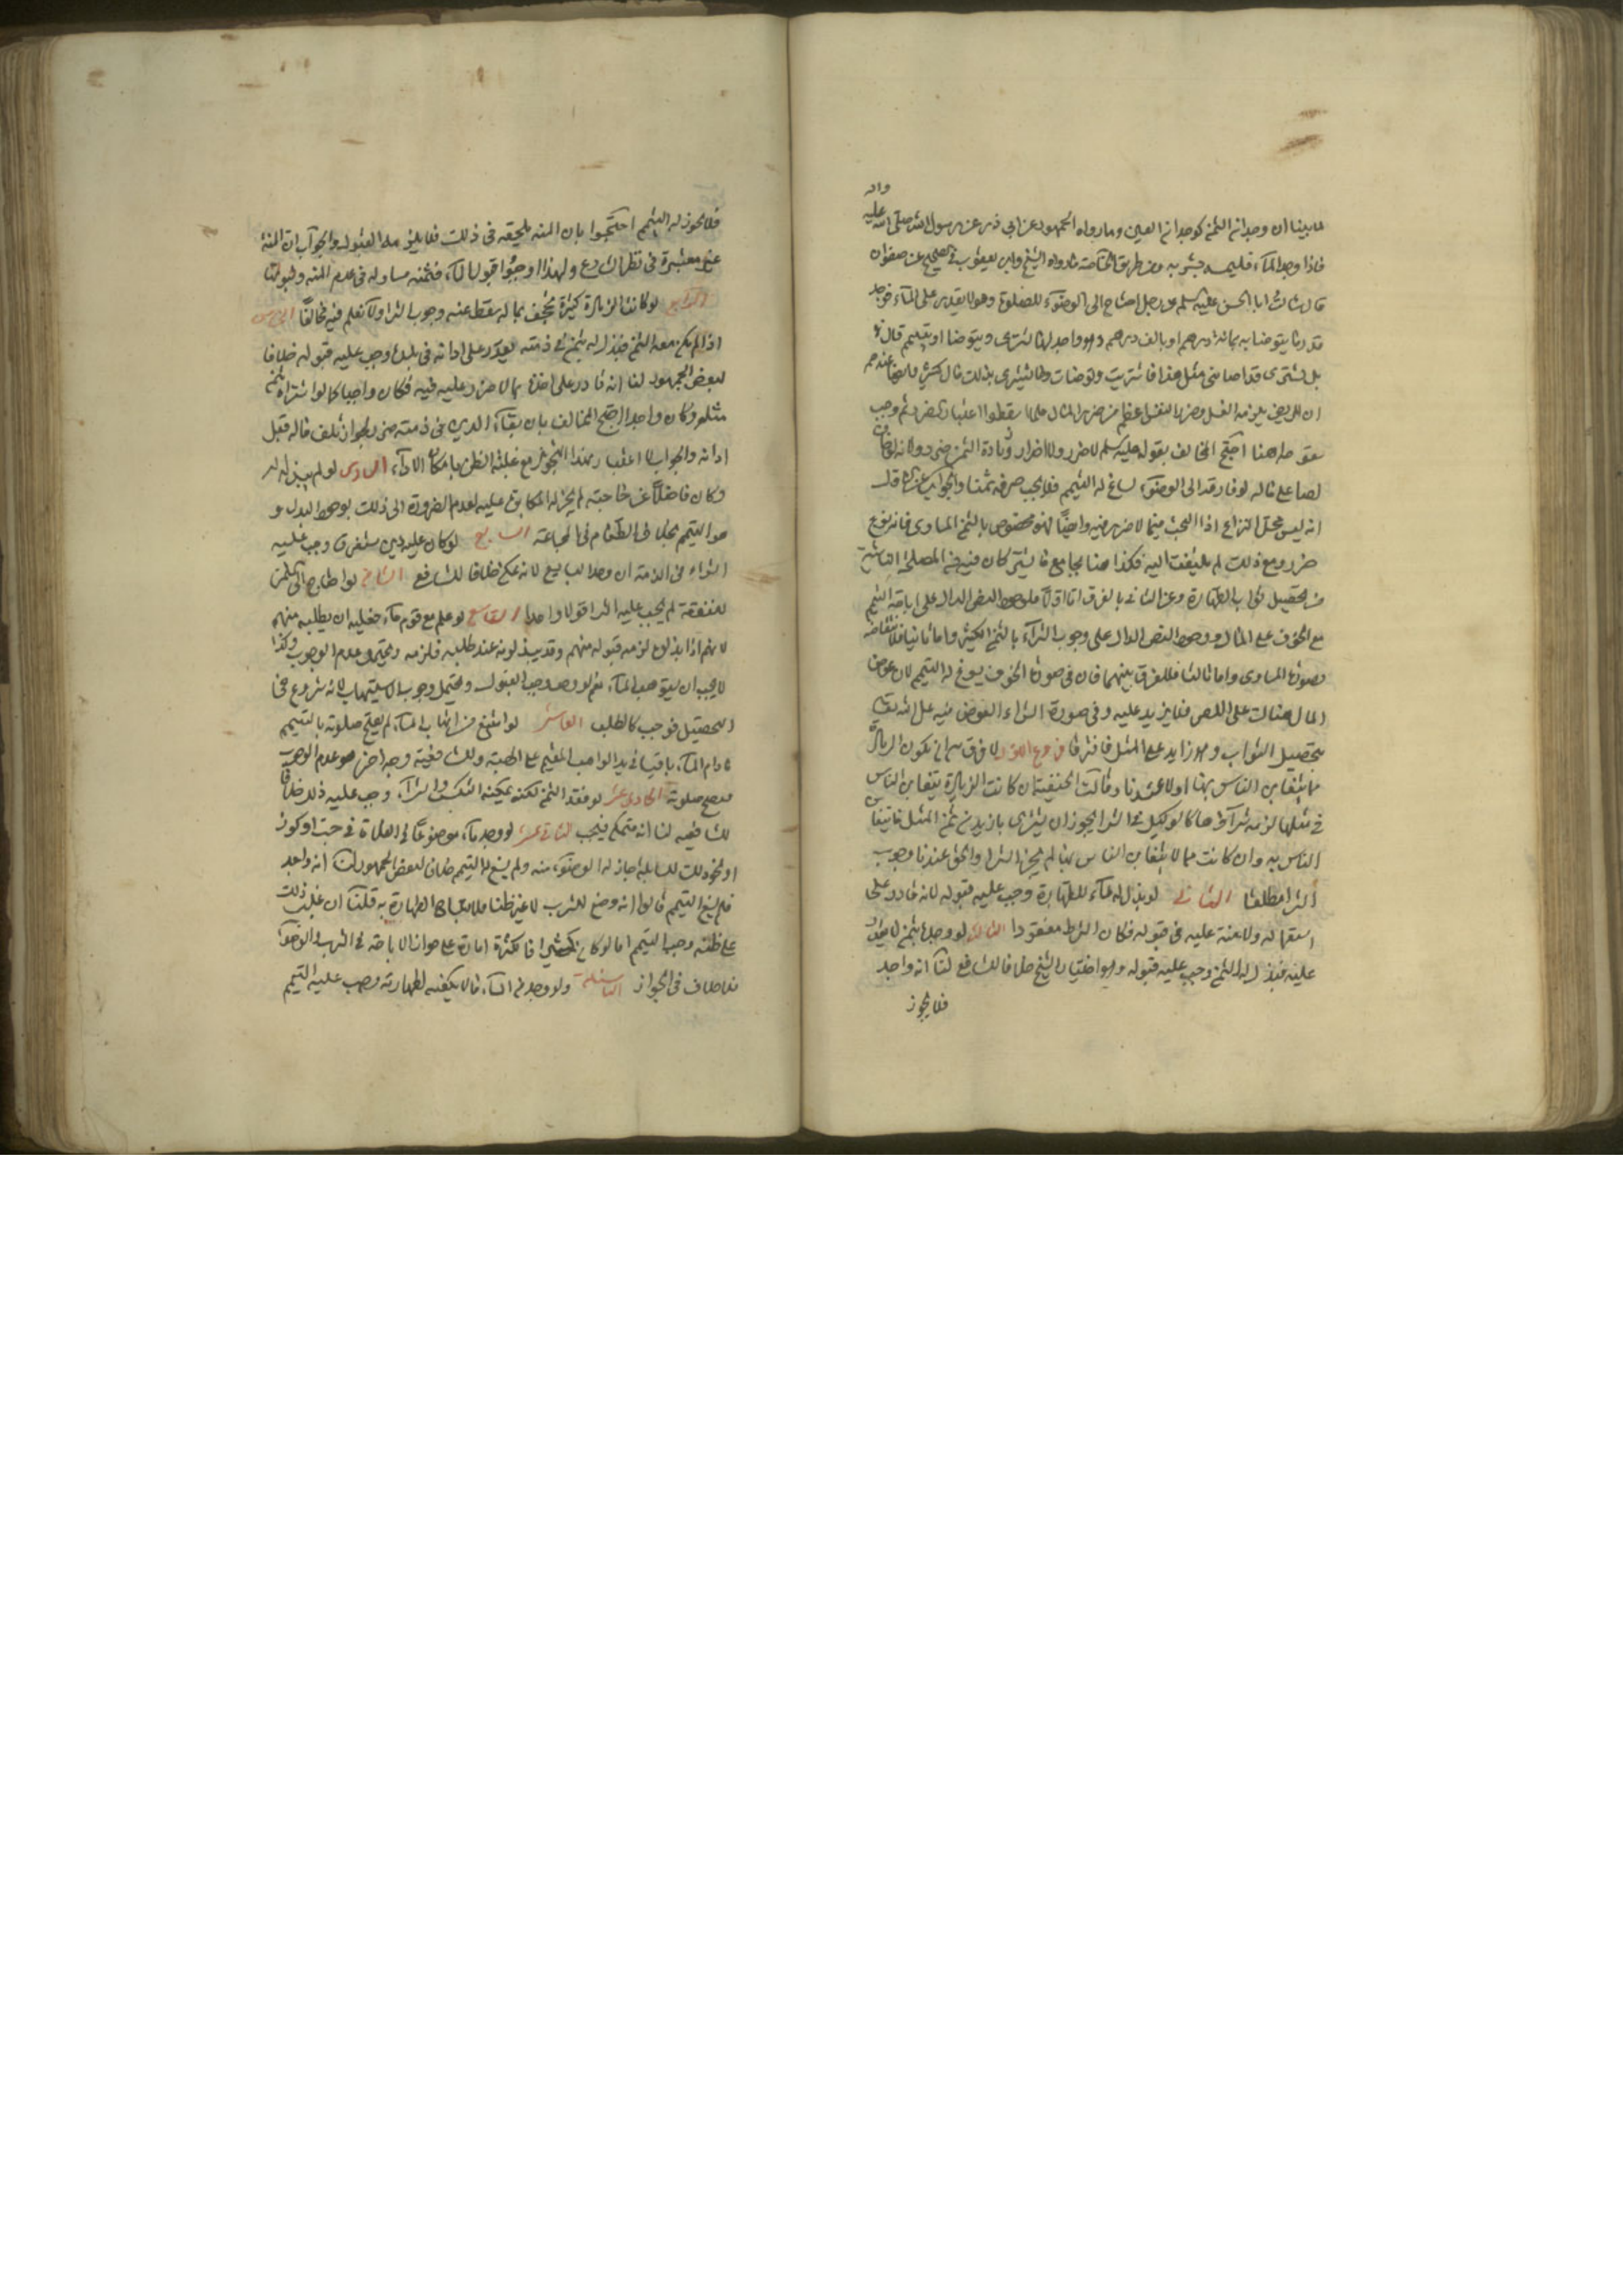 واله
لما بينا ان وجدانه الثمن كوجدانه العين وما رواه الجمهور عن ابي ذر عن رسول الله صلى الله عليه
فاذا وجد الماء فليمسه بشربه ومن طريق الخاصة ما رواه الشيخ وابن يعقوب في الصحيح عن صفوان
قال سالت ابا الحسن عليه السلم عن رجل احتاج الى الوضوء للصلوة وهو لا يقدر على الماء فوجد
قدر ما يتوضا به بمائة درهم او بالف درهم وهو واجد لها يشترى ويتوضا او يتيمم قال لا
بل يشترى قد اصابنى مثل هذا فاشتريت وتوضات وما يشترى بذلك مال كثير وايضا عندهم
ان المريض يلزمه الغسل وضرر النفس اعظم من ضرر المال فلما اسقطوا اعتبار الضرر ثم وجب
سقوطه هنا احتج المخالف بقوله عليه السلم لا ضرر ولا اضرار وزيادة الثمن ضرر ولانه لو خاف
لصا على ماله لو فارقه الى الوضوء لساغ له التيمم فلا يجب صرفه ثمنا والجواب عن الاول
انه ليس محل النزاع اذ البحث فيما لا ضرر فيه وايضا فهو مخصوص بالثمن المساوى فانه نوع
ضرر ومع ذلك لم يلتفت اليه فكذا هنا بجامع ما يشتركان فيه من المصلحة الناشية
من تحصيل ثواب الطهارة وعن الثانى بالفرق اما اولا فلوجود النص الدال على اباحة التيمم
مع الخوف على المال ووجود النص الدال على وجوب الشراء بالثمن الكثير واما ثانيا فلانتقاضه
بصورة المساوى واما ثالثا فللفرق بينهما فان في صورة الخوف يسوغ له التيمم لان عوض
المال هناك على اللص فلا يزيد عليه وفي صورة الشراء العوض فيه على الله تعالى
بتحصيل الثواب وهو زايد على المثل فافترقا فروع الاول لا فرق بين ان يكون الزيادة
مما يتغابن الناس بها او لا عندنا وقالت الحنفية ان كانت الزيادة يتغابن الناس
في مثلها لزمه شراوها كالوكيل في الشرا يجوز ان يشترى بازيد من ثمن المثل مما يتغابن
الناس به وان كانت مما لا يتغابن الناس بها لم يجز الشرا والحق عندنا وجوب
الشرا مطلقا الثاني لو بذل له ماء للطهارة وجب عليه قبوله لانه قادر على
استعماله ولا منة عليه في قبوله فكان الشرط مفقودا الثالث لو وجد بثمن لا يقدر
عليه فبذل له الثمن وجب عليه قبوله وهو اختيار الشيخ خلافا للشافعي لنا انه واجد
فلا يجوز
فلا يجوز له التيمم احتجوا بان المنة يلحقه في ذلك فلا يلزمه القبول والجواب ان المنة
غير معتبرة في نظر الشرع ولهذا اوجبوا قبول الماء فثمنه مساو له في عدم المنة وقبولها
الرابع لو كانت الزيادة كثيرة تجحف بماله سقط عنه وجوب الشرا ولا نعلم فيه مخالفا الخامس
اذا لم يكن معه الثمن فبذل له بثمن في ذمته يقدر على ادائه في بلده وجب عليه قبوله خلافا
لبعض الجمهور لنا انه قادر على اخذه بما لا ضرر عليه فيه فكان واجبا كما لو اشتراه بثمن
مثله وكان واجدا احتج المخالف بان بقاء الدين في ذمته ضرر لجواز تلف ماله قبل
ادائه والجواب لا اعتبار بهذا التجويز مع غلبة الظن بامكان الاداء السادس لو لم يبذله له
وكان فاضلا عن حاجته لم يجز له المكابرة عليه لعدم الضرورة الى ذلك بوجود البدل و
هو التيمم بخلاف الطعام في المجاعة السابع لو كان عليه دين مستغرق وجب عليه
الشراء في الذمة ان وجد البايع لانه ممكن خلافا للشافعي الثامن لو احتاج الى الثمن
للنفقة لم يجب عليه الشرا قولا واحدا التاسع لو علم مع قوم ماء فعليه ان يطلبه منهم
لانهم اذا بذلوه لزمه قبوله منهم وقد يبذلونه عند طلبه فلزمه ويحتمل عدم الوجوب وكذا
لا يجب ان يستوهب الماء نعم لو وهب وجب القبول ويحتمل وجوب الاستيهاب لانه شروع في
التحصيل فوجب كالطلب العاشر لو امتنع من اتهاب الماء لم يصح صلوته بالتيمم
ما دام الماء باقيا في يد الواهب المقيم على الهبة وللشافعية وجه اخر هو عدم الوجوب
فتصح صلوته الحادى عشر لو فقد الثمن لكنه يمكنه التكسب والشراء وجب عليه ذلك خلافا
للشافعية لنا انه متمكن فيجب الثاني عشر لو وجد ماء موضوعا في الفلاة في حب او كوز
او نحو ذلك للسابلة جاز له الوضوء منه ولم يسغ له التيمم خلافا لبعض الجمهور لنا انه واجد
فلم يسغ التيمم قالوا انه وضع للشرب لا غير ظنا فلا يباح الطهارة به قلنا ان غلب ذلك
على ظنه وجب التيمم اما لو كان كثيرا فالكثرة امارة على جواز الاباحة في الشرب والوضوء
فلا خلاف في الجواز التاسعة ولو وجد من الماء ما لا يكفيه لطهارته وجب عليه التيمم